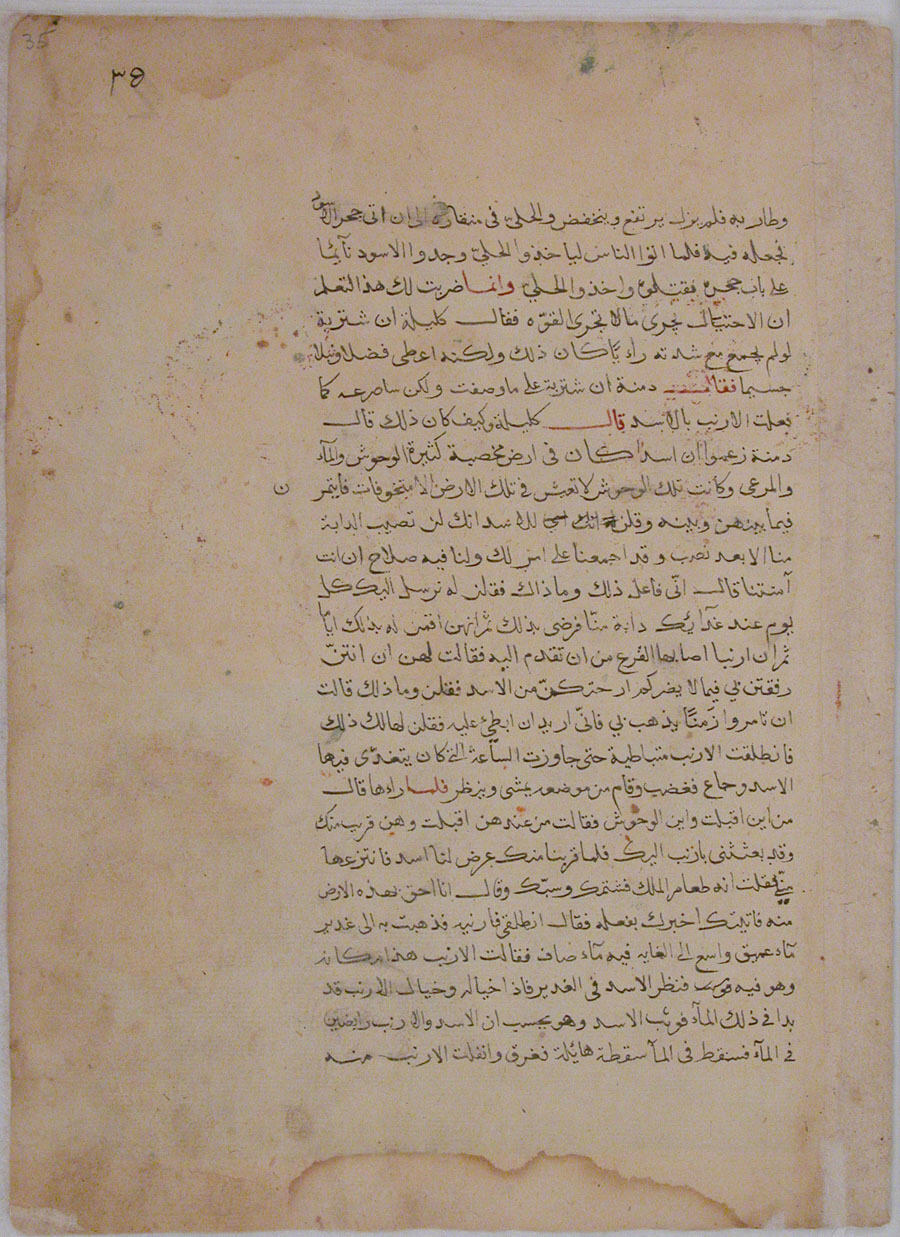 35
٣٥
وطار به فلم يزل يرتفع وينخفض والحلي في منقاره الى ان اتى جحر الاسود
فجعله فيه فلما اتوا الناس لياخذوا الحلي وجدوا الاسود نآئما
على باب جحره فقتلوه واخذوا الحلي وانما ضربت لك هذا لتعلم
ان الاحتيال يجرى مالا تجرى القوه فقال كليلة ان شتربة
لو لم يجمع مع شدته راءيا كان ذلك ولكنه اعطى فضلا ونبلا
جسيما فقال دمنة ان شتربة على ما وصفت ولكن ساصرعه كما
فعلت الارنب بالاسد قال كليلة وكيف كان ذلك قال
دمنة زعموا ان اسدا كان في ارض مخصبة كثيرة الوحوش والمآء
والمرعى وكانت تلك الوحوش لا تعيش في تلك الارض الا متخوفات فايتمر
فيما بينهن وبينه وقلن للاسد انك لن تصيب الدابة
منا الا بعد تعب وقد اجمعنا على امر لك ولنا فيه صلاح ان انت
آمنتنا قال اني فاعل ذلك وما ذاك فقلن له نرسل اليك كل
يوم عند غدآئك دابة منا فرضى بذلك ثم انهن اقمن له بذلك اياما
ثم ان ارنبا اصابها القرع من ان تقدم اليه فقالت لهن ان انتن
رفقتن بي فيما لا يضركم ارحتكن من الاسد فقلن وما ذلك قالت
ان تامروا زمنا يذهب بي فاني اريد ان ابطئ عليه فقلن لها لك ذلك
فانطلقت الارنب متباطية حتى جاوزت الساعة التي كان يتغدى فيها
الاسد وجاع فغضب وقام من موضعه يمشى وينظر فلما راءها قال
من اين اقبلت واين الوحوش فقالت من عندهن اقبلت وهن قريب منك
وقد بعثننى بارنب اليك فلما قربنا منك عرض لنا اسد فانتزعها
منى فقلت انه طعام الملك فشتمك وسبك وقال انا احق بهذه الارض
منه فاتيتك اخبرك بفعله فقال انطلقى فارنيه فذهبت به الى غدير
مآء عميق واسع الى الغايه فيه مآء صاف فقالت الارنب هذا مكانه
وهو فيه فنظر الاسد في الغدير فاذا خياله وخيال الارنب قد
بدا في ذلك المآء فوثب الاسد وهو يحسب ان الاسد والارنب رابضين
في المآء فسقط في المآ سقطة هائلة فغرق وانفلت الارنب منه